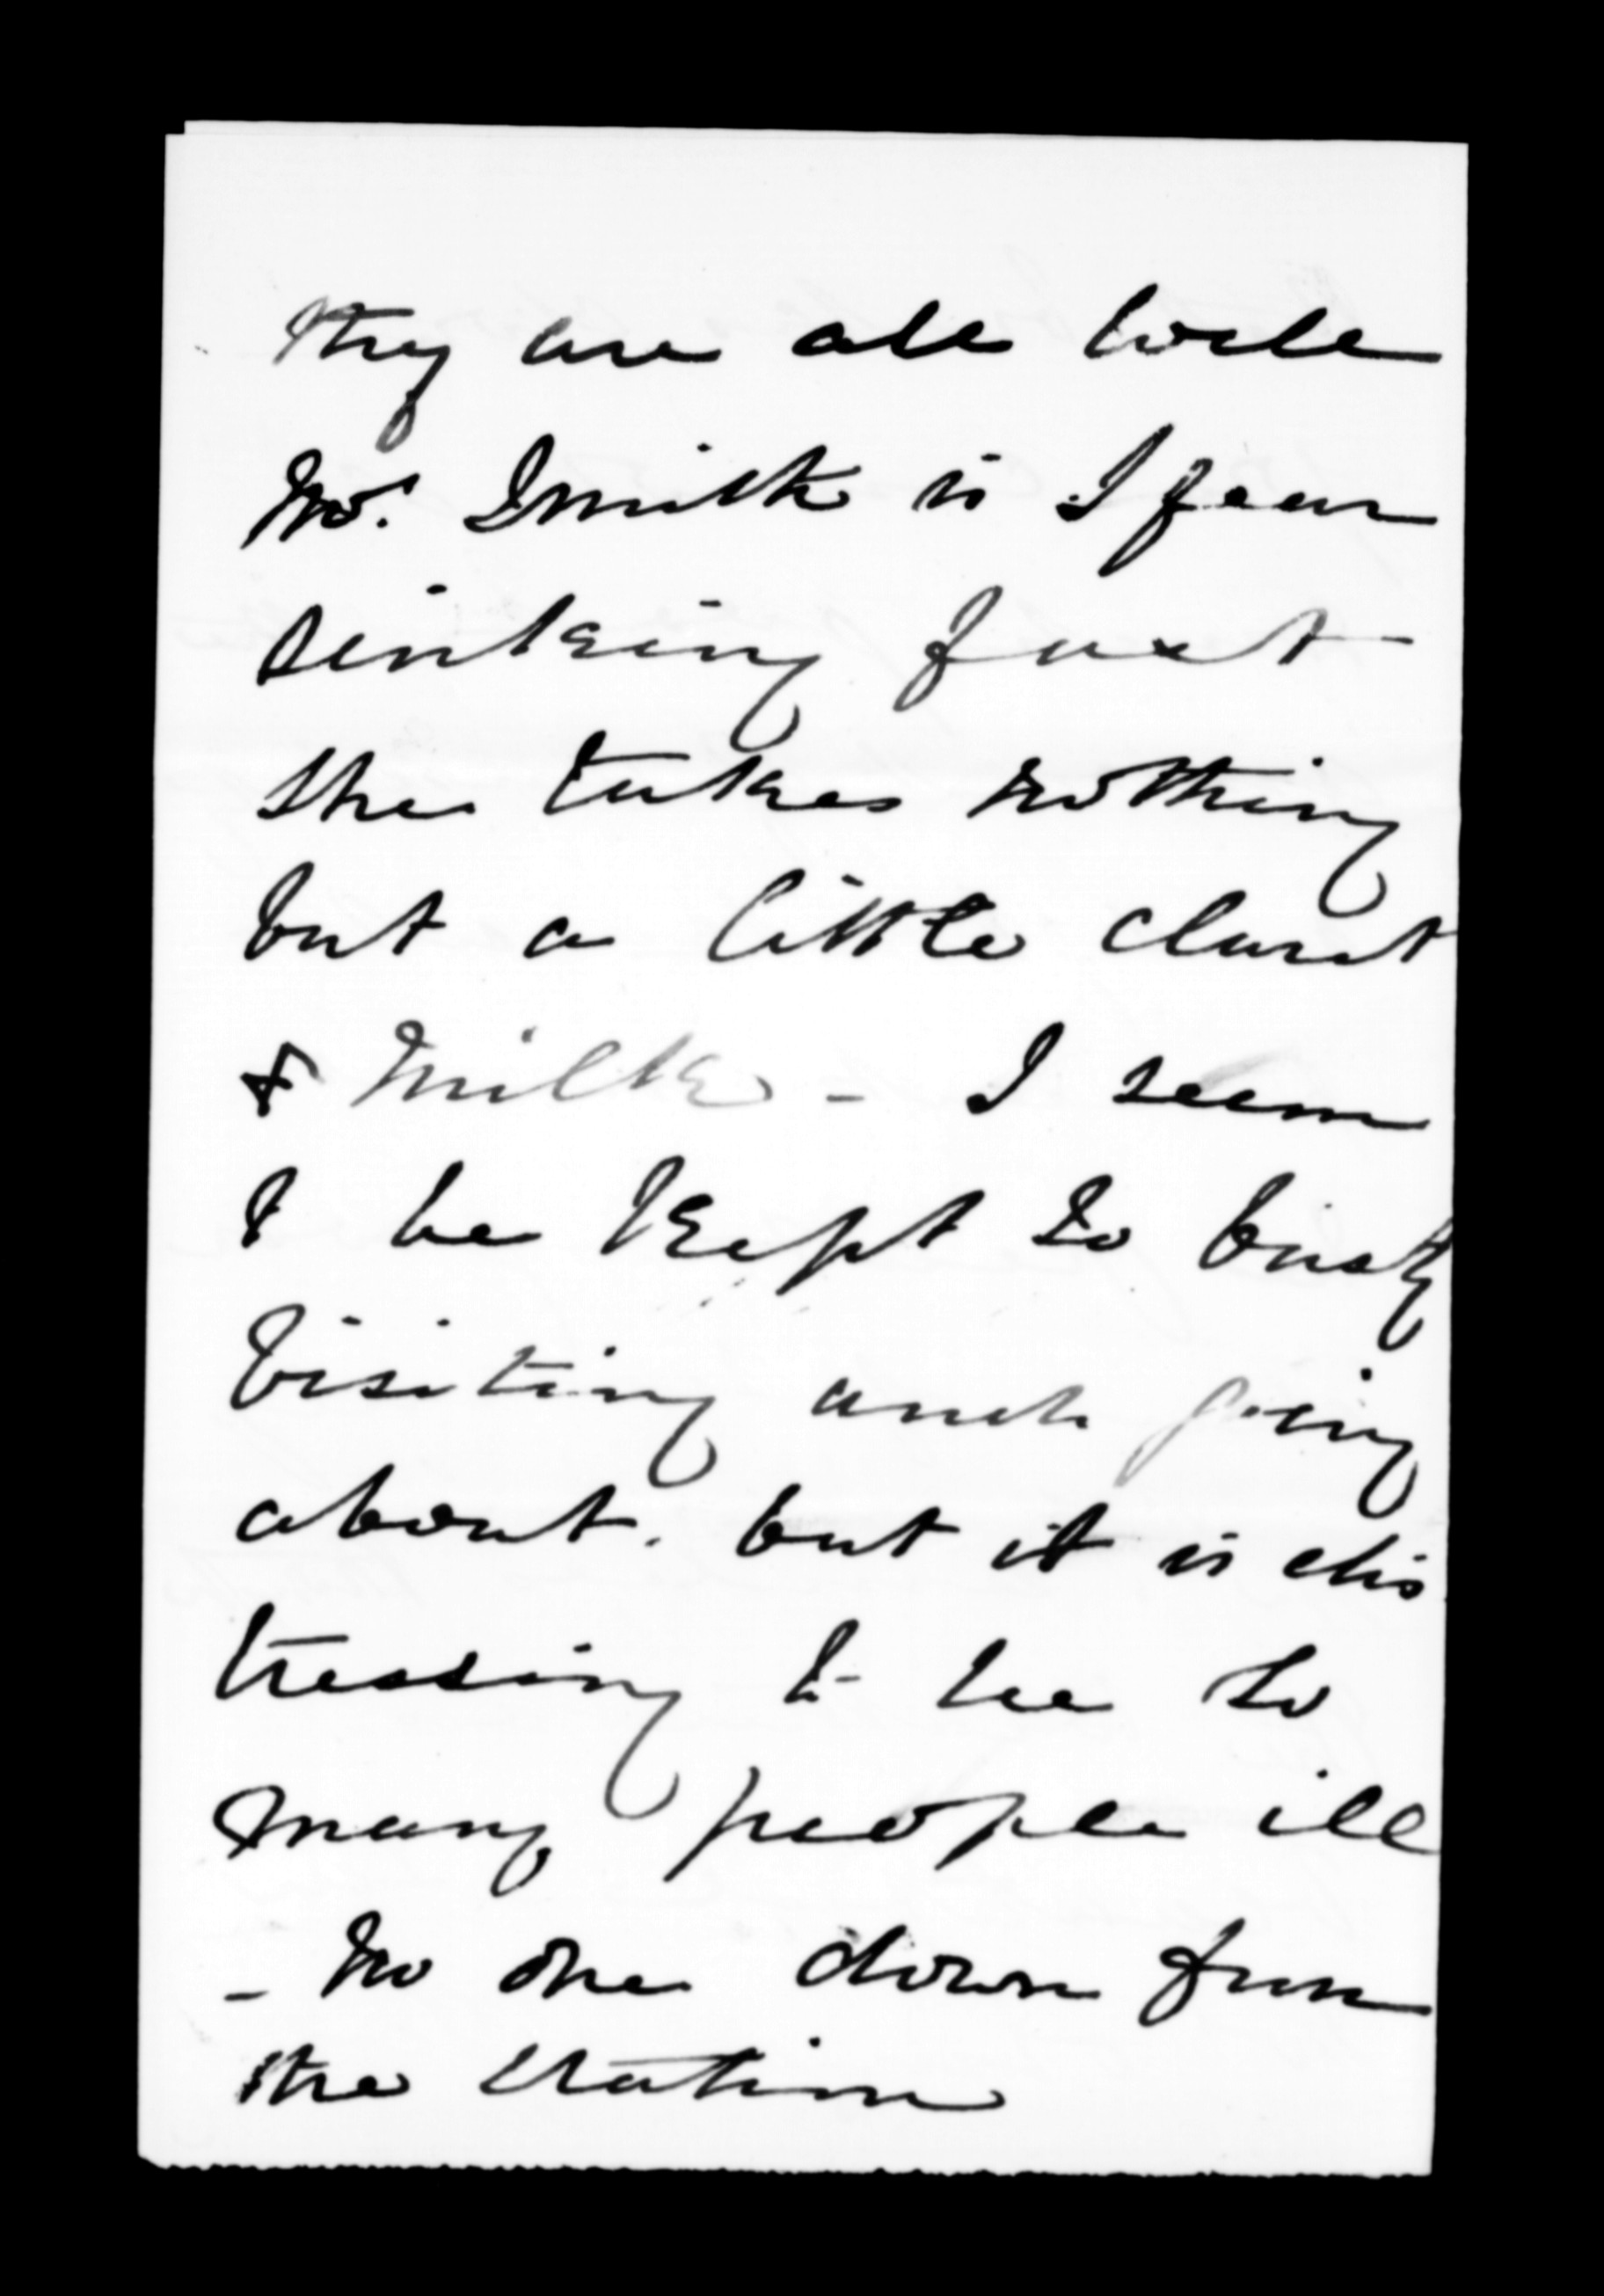 they are all well
Mrs. Smith is I fear
sinking fast
she takes nothing
but a little claret
& milk - I seem
to be kept so busy
visiting and going
about. but it is dis
tressing to see so
many people ill
- no one down from
the station